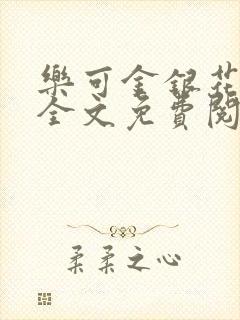 樂可金銀花
全文免費閱
柔柔之心